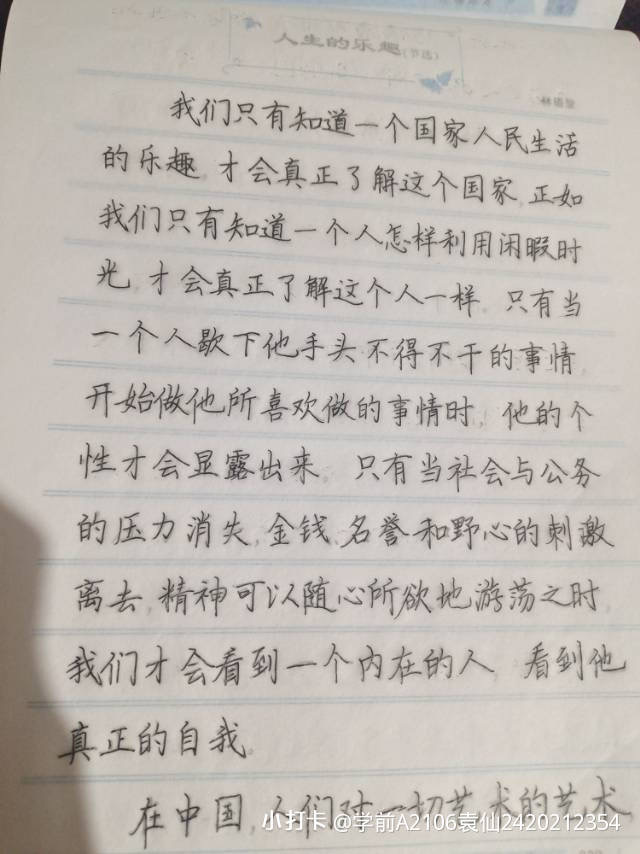 人生的乐趣(节选)
林语堂
我们只有知道一个国家人民生活
的乐趣,才会真正了解这个国家,正如
我们只有知道一个人怎样利用闲暇时
光,才会真正了解这个人一样。只有当
一个人歇下他手头不得不干的事情,
开始做他所喜欢做的事情时,他的个
性才会显露出来。只有当社会与公务
的压力消失,金钱、名誉和野心的刺激
离去,精神可以随心所欲地游荡之时,
我们才会看到一个内在的人,看到他
真正的自我。
在中国,人们对一切艺术的艺术
小打卡 @学前A2106袁仙2420212354